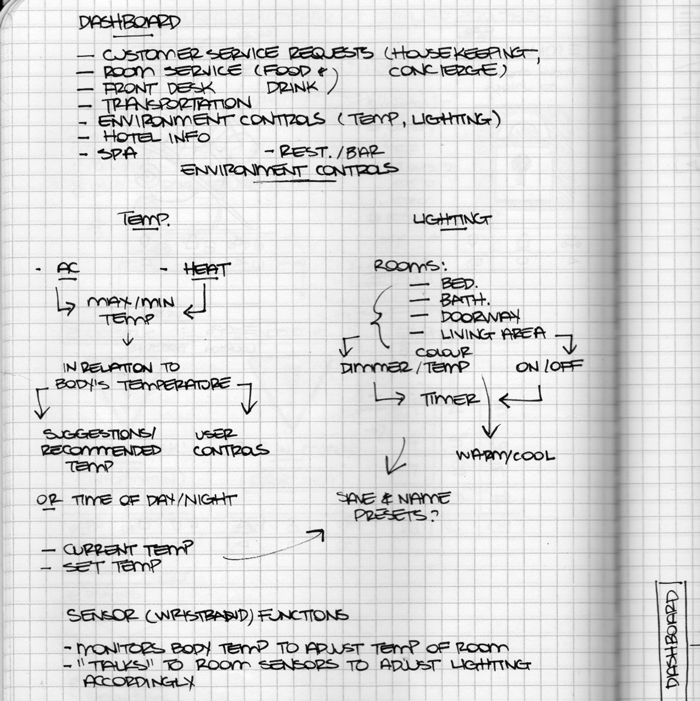 DASHBOARD
— CUSTOMER SERVICE REQUESTS (HOUSEKEEPING,
— ROOM SERVICE (FOOD & CONCIERGE)
— FRONT DESK DRINK)
— TRANSPORTATION
- ENVIRONMENT CONTROLS (TEMP, LIGHTING)
- HOTEL INFO
- SPA - REST./BAR
ENVIRONMENT CONTROLS
TEMP.
- AC - HEAT
MAX/MIN
TEMP
IN RELATION TO
BODY'S TEMPERATURE
SUGGESTIONS/
RECOMMENDED
TEMP
USER
CONTROLS
OR TIME OF DAY/NIGHT
— CURRENT TEMP
— SET TEMP
LIGHTING
ROOMS:
— BED.
— BATH.
— DOORWAY
— LIVING AREA
COLOUR
DIMMER/TEMP ON/OFF
TIMER
WARM/COOL
SAVE & NAME
PRESETS?
SENSOR (WRISTBAND) FUNCTIONS
- MONITORS BODY TEMP TO ADJUST TEMP OF ROOM
- "TALKS" TO ROOM SENSORS TO ADJUST LIGHTING
ACCORDINGLY
DASHBOARD